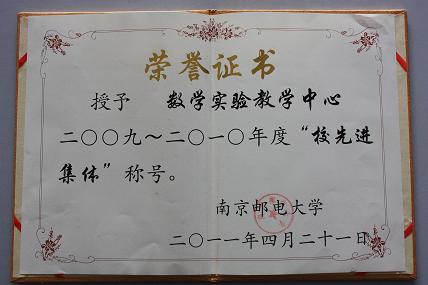 荣誉证书
授予 数学实验教学中心
二〇〇九～二〇一〇年度“校先进
集体”称号。
南京邮电大学
二〇一一年四月二十一日